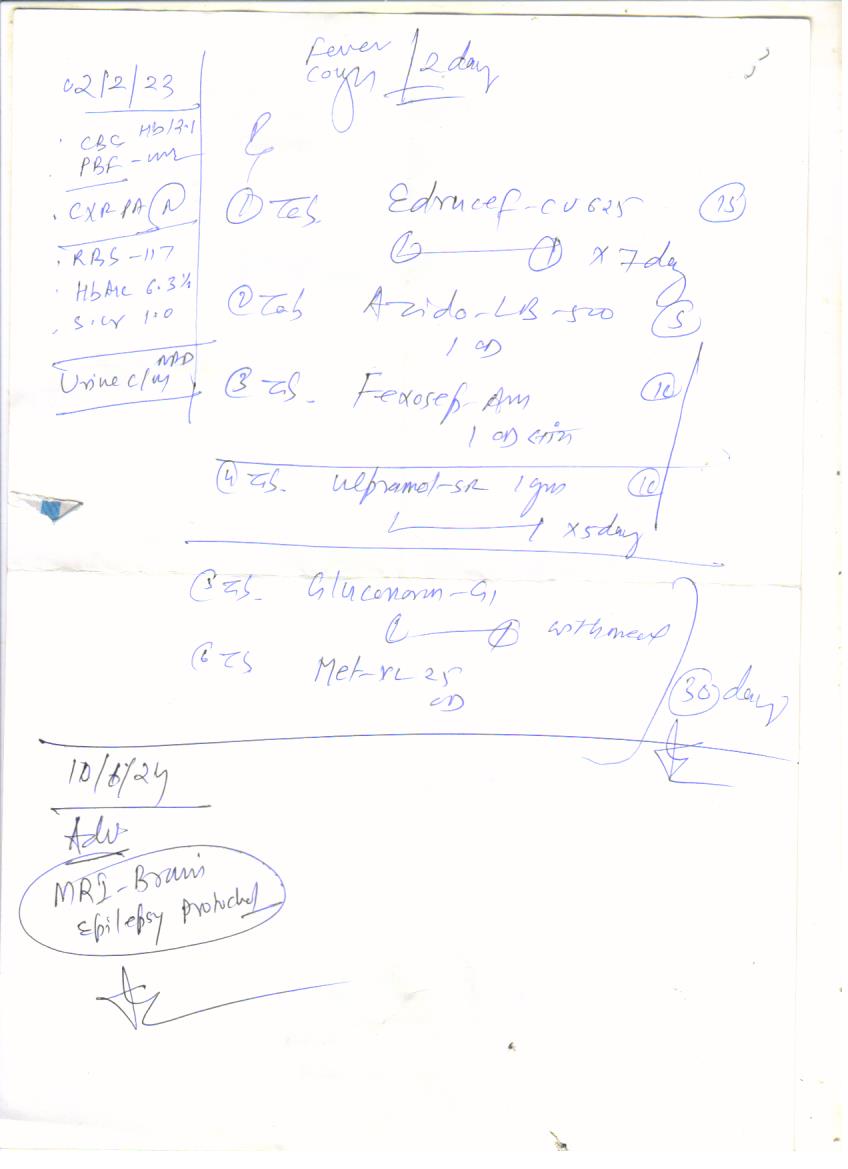 Fever
cough / 2 day
02/2/23
CBC Hb 13.1
PBF -
CXR PA (N)
RBS - 117
HbA1c 6.3%
S.cr 1.0
Urine c/m NAD
① Tab. Edrucef-CV 625 (15)
1 — 1 x 7 day
② Tab Azido-LB-500 (5)
1 OD
③ Tab. Fexosef Am (10)
1 OD
④ Tab. Ulpramol-SR 1 gm (10)
1 — 1 x 5 day
⑤ Tab. Gluconorm-G1
1 — 1 with meal
⑥ Tab Met-XL 25
OD
(30) day
10/6/24
Adv
MRI-Brain
Epilepsy Protochol